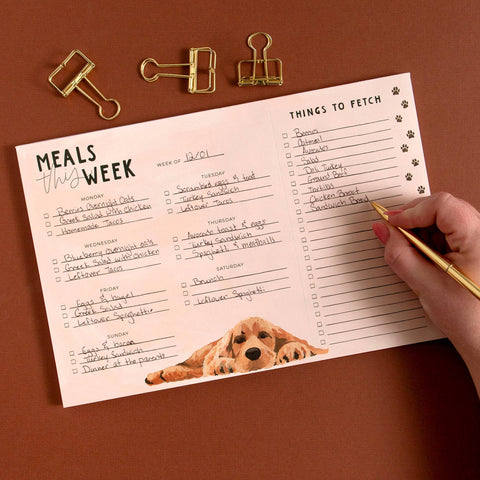 MEALS
this WEEK
WEEK OF 12/01
MONDAY
Berries Overnight Oats
Greek Salad with Chicken
Homemade Tacos
TUESDAY
Scrambled eggs & toast
Turkey Sandwich
Leftover Tacos
WEDNESDAY
Blueberry Overnight oats
Greek Salad with Chicken
Leftover Tacos
THURSDAY
Avocado toast & eggs
Turkey Sandwich
Spaghetti & meatballs
FRIDAY
Eggs & bagel
Greek Salad
Leftover Spaghetti
SATURDAY
Brunch
Leftover Spaghetti
SUNDAY
Eggs & bacon
Turkey Sandwich
Dinner at the parents
THINGS TO FETCH
Berries
Oatmeal
Avocados
Salad
Deli Turkey
Ground Beef
Tortillas
Chicken Breast
Sandwich Bread